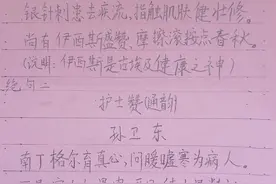 银针刺患去疾流,指触肌肤健壮修。
尚有伊西斯盛赞,摩擦滚按点春秋。
(说明:伊西斯是古埃及健康之神)
绝句二
护士赞(通韵)
孙卫东
南丁格尔育真心,问暖嘘寒为病人。